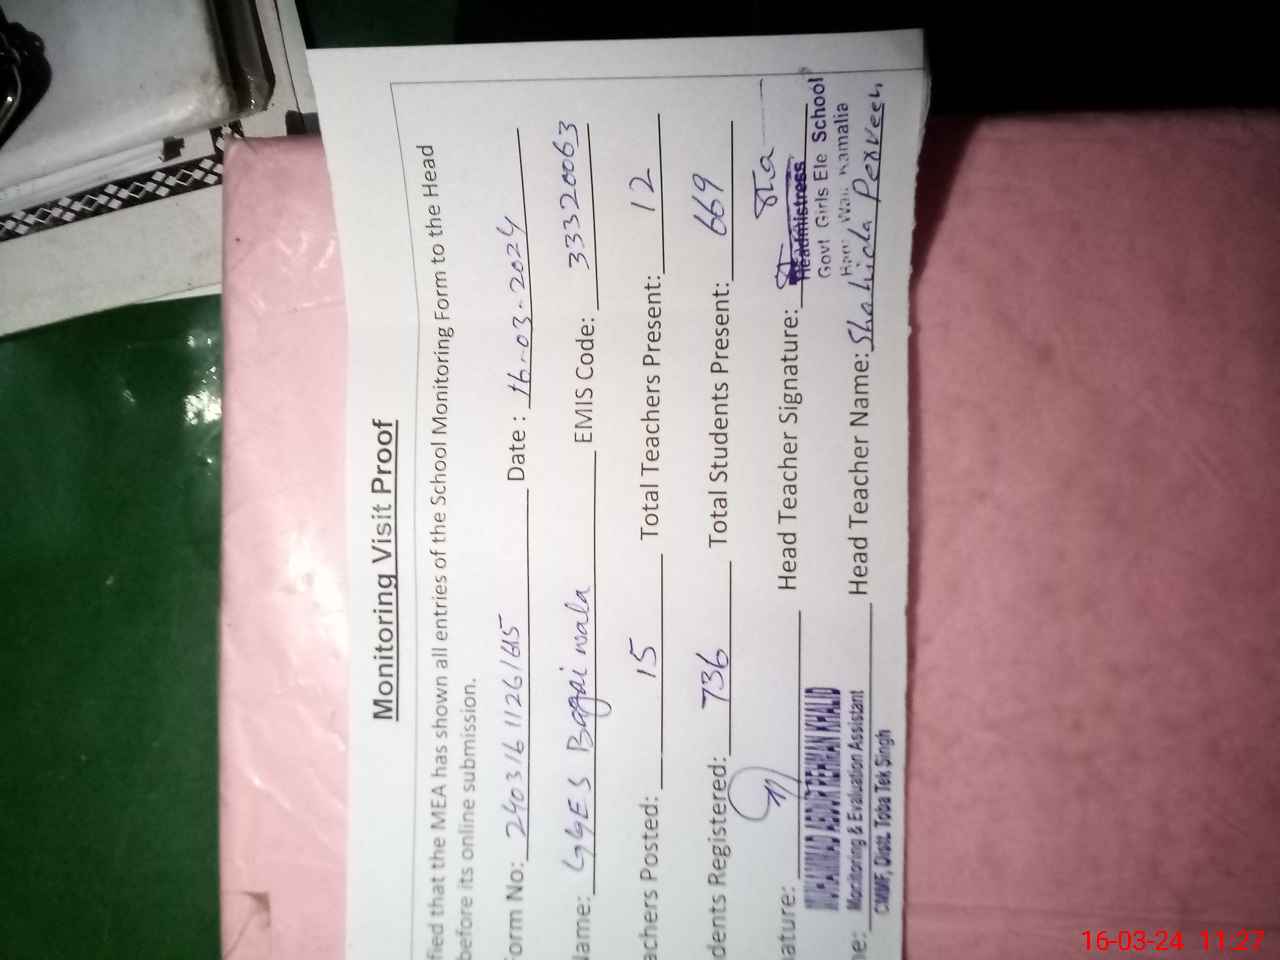 Monitoring Visit Proof
fied that the MEA has shown all entries of the School Monitoring Form to the Head
before its online submission.
Form No: 24031611261615 Date : 16-03-2024
Name: GGES Baggai wala EMIS Code: 33320063
achers Posted: 15 Total Teachers Present: 12
dents Registered: 736 Total Students Present: 669
ature: Head Teacher Signature:
Headmistress
Govt Girls Ele School
Kamalia
MUHAMMAD ABDUR REHMAN KHALID
Monitoring & Evaluation Assistant
CMMF, Distt. Toba Tek Singh
me: Head Teacher Name: Shahida Perveen
16-03-24 11:27